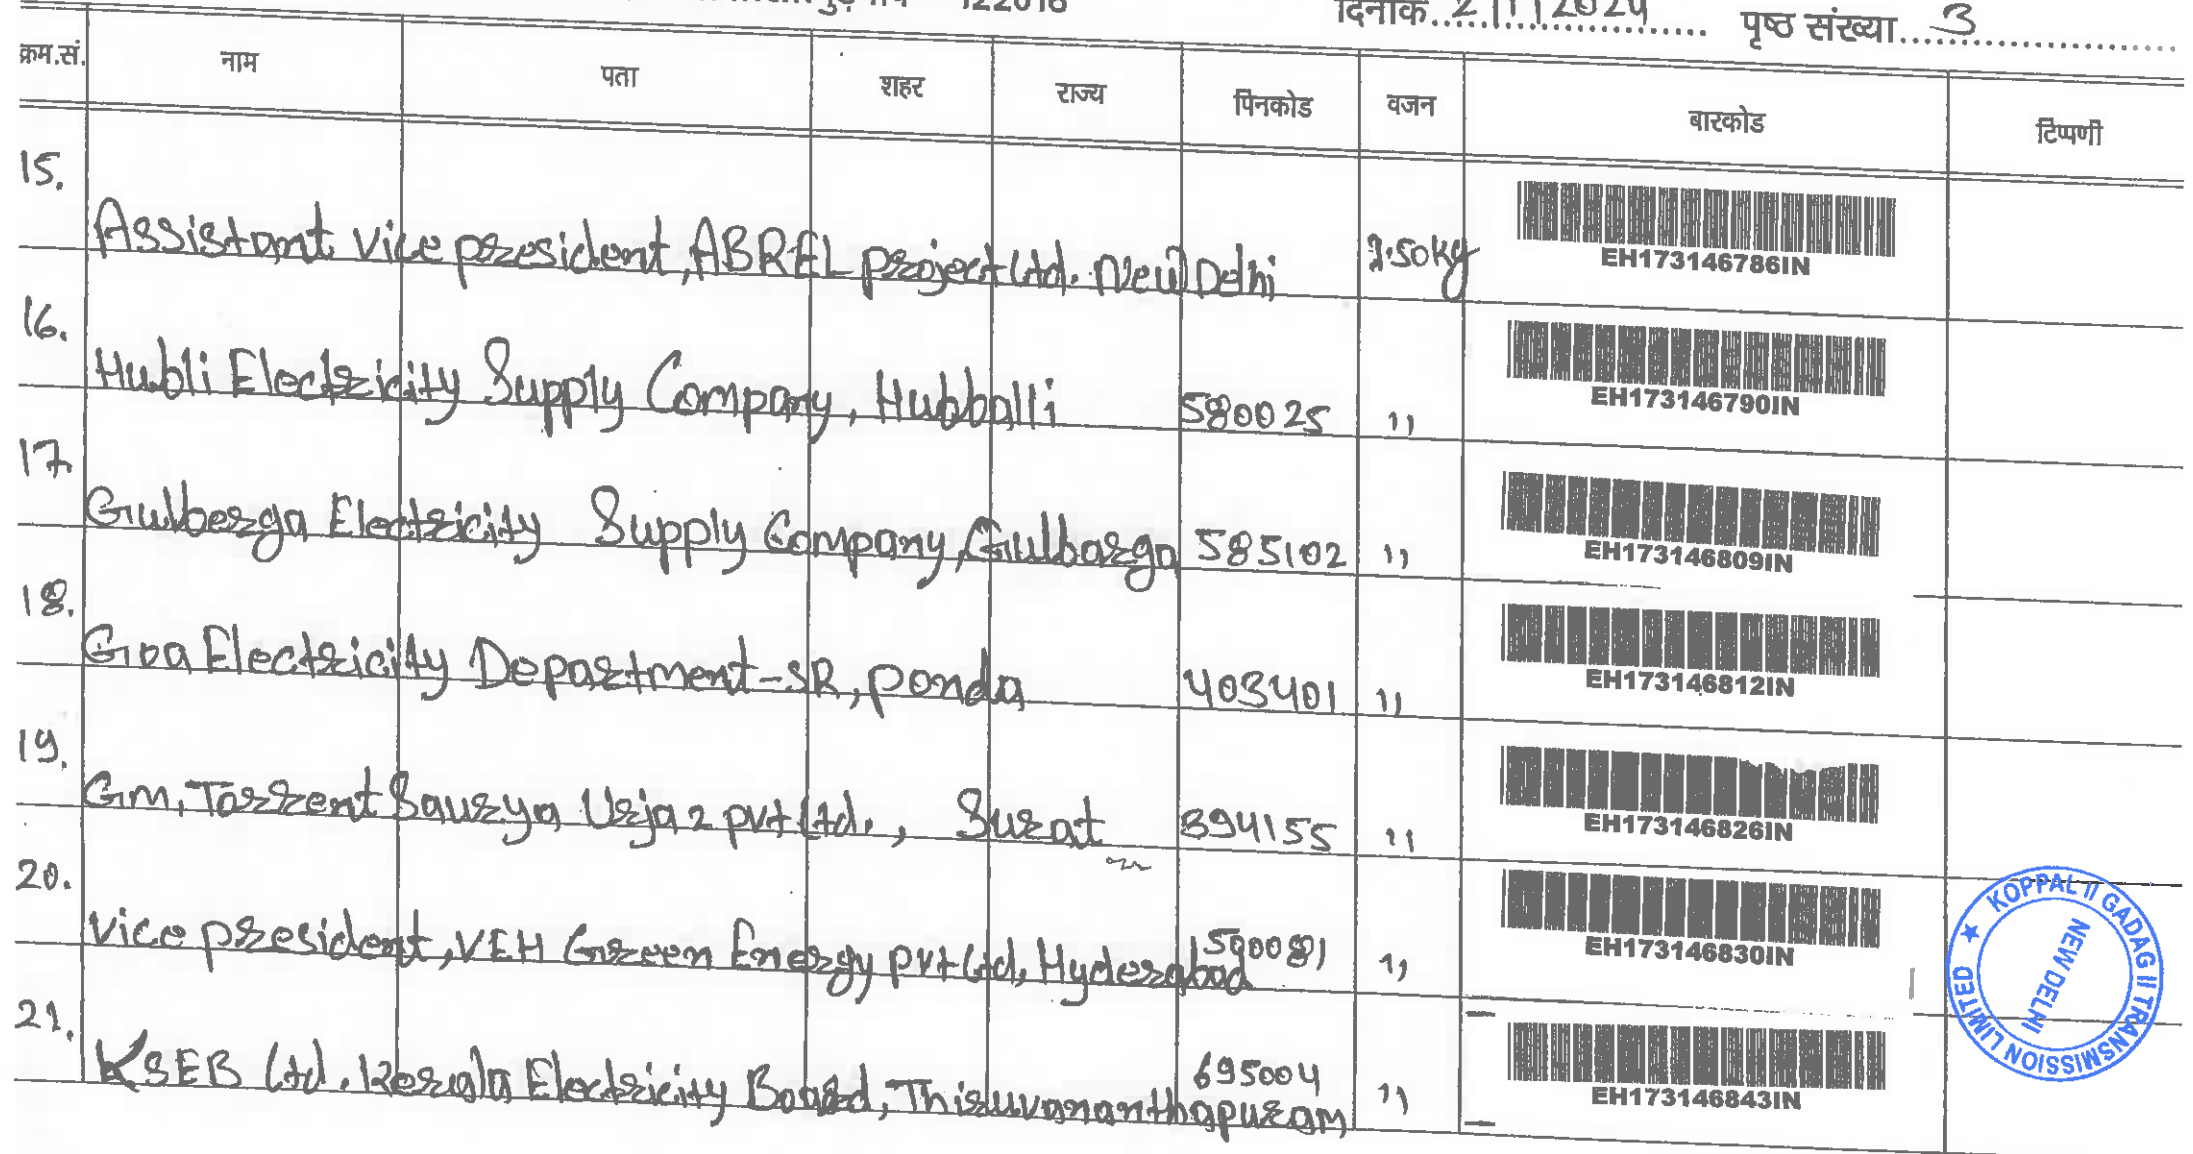 122016
दिनांक..2/1/2024.......... पृष्ठ संख्या....3....................
क्रम.सं. नाम पता शहर राज्य पिनकोड वजन बारकोड टिप्पणी
15. Assistant vice president, ABREL project Ltd. New Delhi 7.50kg EH173146786IN
16. Hubli Electricity Supply Company, Hubballi 580025 ,, EH173146790IN
17. Gulberga Electricity Supply Company, Gulbarga 585102 ,, EH173146809IN
18. Goa Electricity Department-SR, ponda 403401 ,, EH173146812IN
19. Gm, Torrent Saurya Urja 2 pvt Ltd., Surat 394155 ,, EH173146826IN
20. vice president, VEH Green Energy pvt Ltd, Hyderabad 500081 ,, EH173146830IN
21. KSEB Ltd. Kerala Electricity Board, Thiruvananthapuram 695004 ,, EH173146843IN
★ KOPPAL II GADAG II TRANSMISSION LIMITED
NEW DELHI